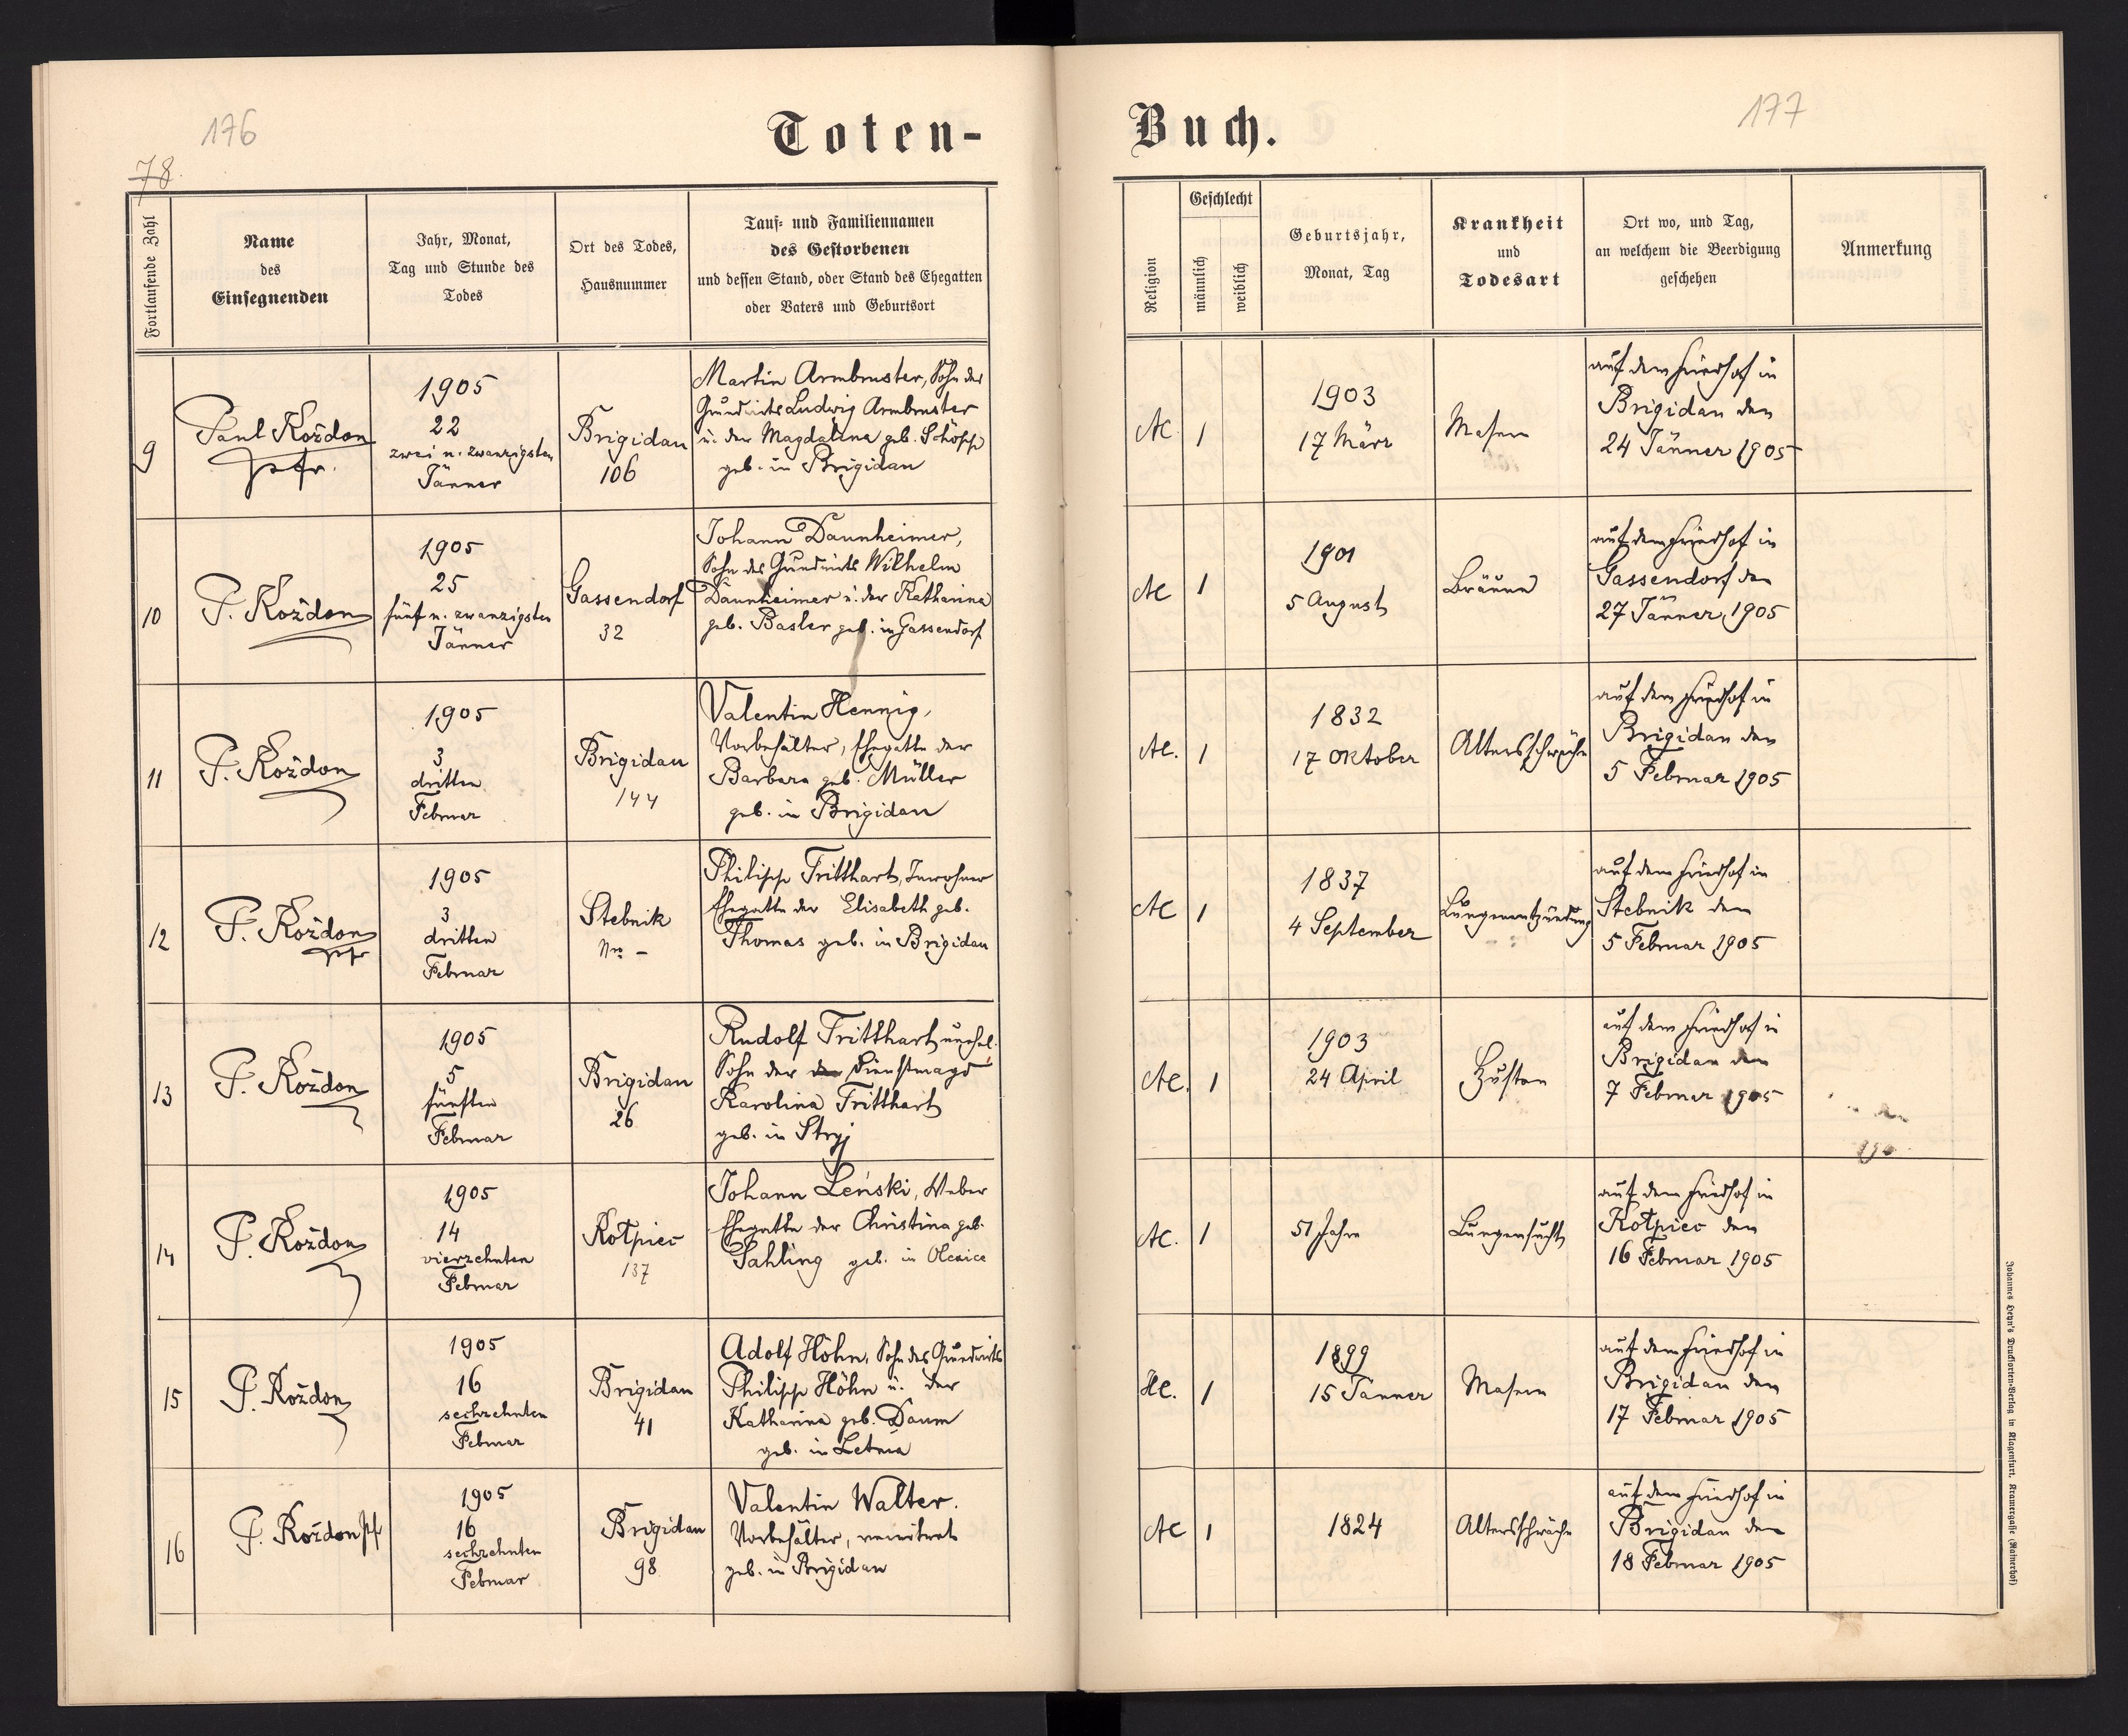 176
78.
Toten-
Fortlaufende Zahl
Name
des
Einsegnenden
Jahr, Monat,
Tag und Stunde des
Todes
Ort des Todes,
Hausnummer
Tauf- und Familiennamen
des Gestorbenen
und dessen Stand, oder Stand des Ehegatten
oder Vaters und Geburtsort
9
Paul Kożdon
pfr.
1905
22
zwei u. zwanzigsten
Jänner
Brigidau
106
Martin Armbruster, Sohn des
Grundwirts Ludwig Armbruster
u. der Magdalena geb. Schöpp
geb. in Brigidau
10
P. Kożdon
1905
25
fünf u. zwanzigsten
Jänner
Gassendorf
32
Johann Daunheimer,
Sohn des Grundwirts Wilhelm
Daunheimer u. der Katharina
geb. Basler geb. in Gassendorf
11
P. Kożdon
1905
3
dritten
Februar
Brigidau
144
Valentin Hennig,
Vorbehälter, Ehegatte der
Barbara geb. Müller
geb. in Brigidau
12
P. Kożdon
pfr
1905
3
dritten
Februar
Stebnik
Nr. –
Philipp Tritthart, Inwohner
Ehegatte der Elisabeth geb.
Thomas geb. in Brigidau
13
P. Kożdon
1905
5
fünften
Februar
Brigidau
26
Rudolf Tritthart, unehel.
Sohn der der Dienstmagd
Karolina Tritthart
geb. in Stryj
14
P. Kożdon
1905
14
vierzehnten
Februar
Kołpiec
137
Johann Leński, Weber
Ehegatte der Christina geb.
Sahling geb. in Olexice
15
P. Kożdon
1905
16
sechzehnten
Februar
Brigidau
41
Adolf Höhn, Sohn des Grundwirts
Philipp Höhn u. der
Katharina geb. Daum
geb. in Letnia
16
P. Kożdon pf
1905
16
sechzehnten
Februar
Brigidau
98
Valentin Walter.
Vorbehälter, verwitwet
geb. in Brigidau
177
Buch.
Religion
Geschlecht
männlich
weiblich
Geburtsjahr,
Monat, Tag
Krankheit
und
Todesart
Ort wo, und Tag,
an welchem die Beerdigung
geschehen
Anmerkung
AC
1
1903
17 März
Masern
auf dem Friedhof in
Brigidau den
24 Jänner 1905
AC
1
1901
5 August
Bräune
auf dem Friedhof in
Gassendorf den
27 Jänner 1905
AC.
1
1832
17 Oktober
Altersschwäche
auf dem Friedhof in
Brigidau den
5 Februar 1905
AC
1
1837
4 September
Lungenentzündung
auf dem Friedhof in
Stebnik den
5 Februar 1905
AC.
1
1903
24 April
Husten
auf dem Friedhof in
Brigidau den
7 Februar 1905
AC.
1
51 Jahre
Lungensucht
auf dem Friedhof in
Kołpiec den
16 Februar 1905
HC.
1
1899
15 Jänner
Masern
auf dem Friedhof in
Brigidau den
17 Februar 1905
AC
1
1824
Altersschwäche
auf dem Friedhof in
Brigidau den
18 Februar 1905
Johannes Heyn's Drucksorten-Verlag in Klagenfurt, Kramergasse (Rainerhof)